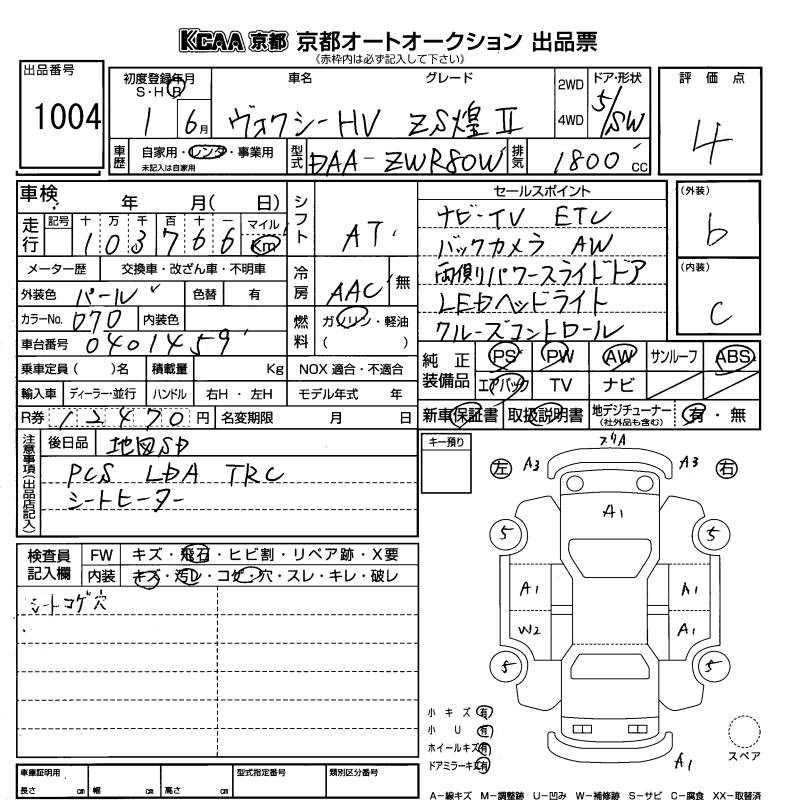 KCAA 京都 京都オートオークション 出品票
(赤枠内は必ず記入して下さい)
出品番号
1004
初度登録年月 車名 グレード
S・H・R
1 6月 ヴォクシーHV ZS煌Ⅱ
2WD
4WD
ドア・形状
5/SW
評価点
4
車歴 自家用・レンタ・事業用
未記入は自家用
型式 DAA-ZWR80W 排気 1800 CC
車検 年 月( 日)
走行 記号 十 万 千 百 十 一 マイル
1 0 3 7 6 6 km
メーター歴 交換車・改ざん車・不明車
外装色 パール 色替 有
カラーNo. 070 内装色
車台番号 0401459
乗車定員( )名 積載量 Kg
輸入車 ディーラー・並行 ハンドル 右H・左H
R券 12470円 名変期限 月 日
シフト AT
冷房 AAC 無
燃料 ガソリン・軽油
( )
NOX 適合・不適合
モデル年式 年
セールスポイント
ナビ・TV ETC
バックカメラ AW
両側パワースライドドア
LEDヘッドライト
クルーズコントロール
(外装)
b
(内装)
C
純正装備品 PS PW AW サンルーフ ABS
エアバック TV ナビ
新車保証書 取扱説明書 地デジチューナー
(社外品も含む)
有・無
注意事項(出品店記入)
後日品 地図SD
PCS LDA TRC
シートヒーター
キー預り
検査員記入欄 FW キズ・飛石・ヒビ割・リペア跡・X要
内装 キズ・汚レ・コゲ・穴・スレ・キレ・破レ
シートコゲ穴
スリA
左 A3 A3 右
A1
5 5
A1 A1
W2 A1
5 5
A1
小キズ 有
小U 有
ホイールキズ 有
ドアミラーキズ 有
スペア
車庫証明用 型式指定番号 類別区分番号
長さ cm 幅 cm 高さ cm
A-線キズ M-調整跡 U-凹み W-補修跡 S-サビ C-腐食 XX-取替済